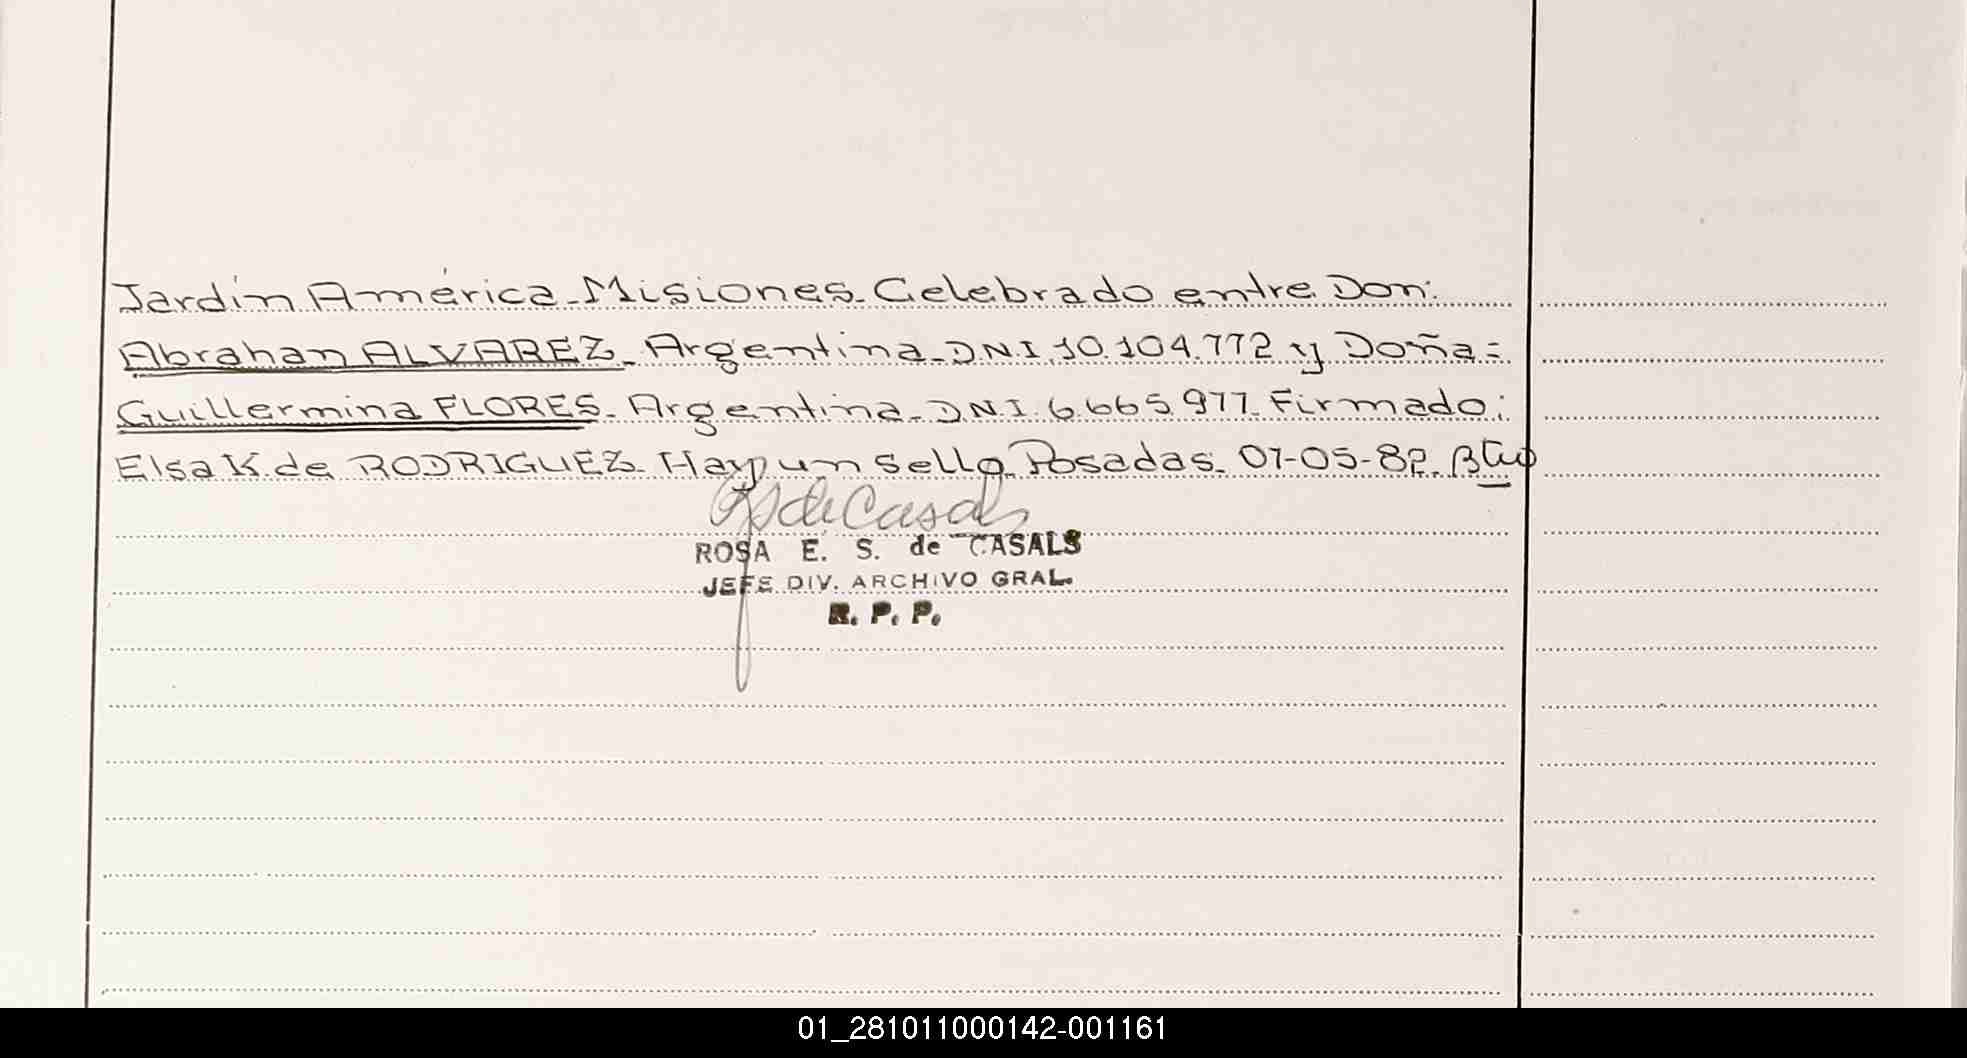 Jardín América - Misiones. Celebrado entre Don:
Abrahan ALVAREZ - Argentina - D.N.I. 10.104.772 y Doña =
Guillermina FLORES - Argentina - D.N.I. 6.665.977. Firmado:
Elsa K. de RODRIGUEZ. Hay un sello. Posadas. 07-05-82.
ROSA E. S. de CASALS
JEFE DIV. ARCHIVO GRAL.
R. P. P.
01_281011000142-001161